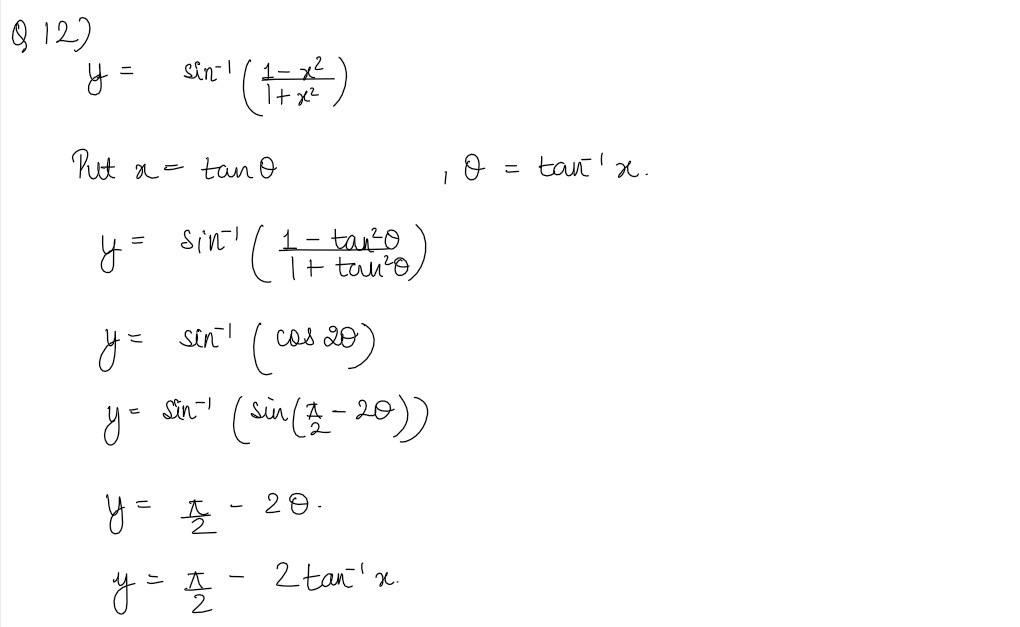 Q 12)
y = sin⁻¹ ( (1 - x²) / (1 + x²) )
Put x = tan θ , θ = tan⁻¹ x.
y = sin⁻¹ ( (1 - tan²θ) / (1 + tan²θ) )
y = sin⁻¹ ( cos 2θ )
y = sin⁻¹ ( sin ( π/2 - 2θ ) )
y = π/2 - 2θ.
y = π/2 - 2 tan⁻¹ x.